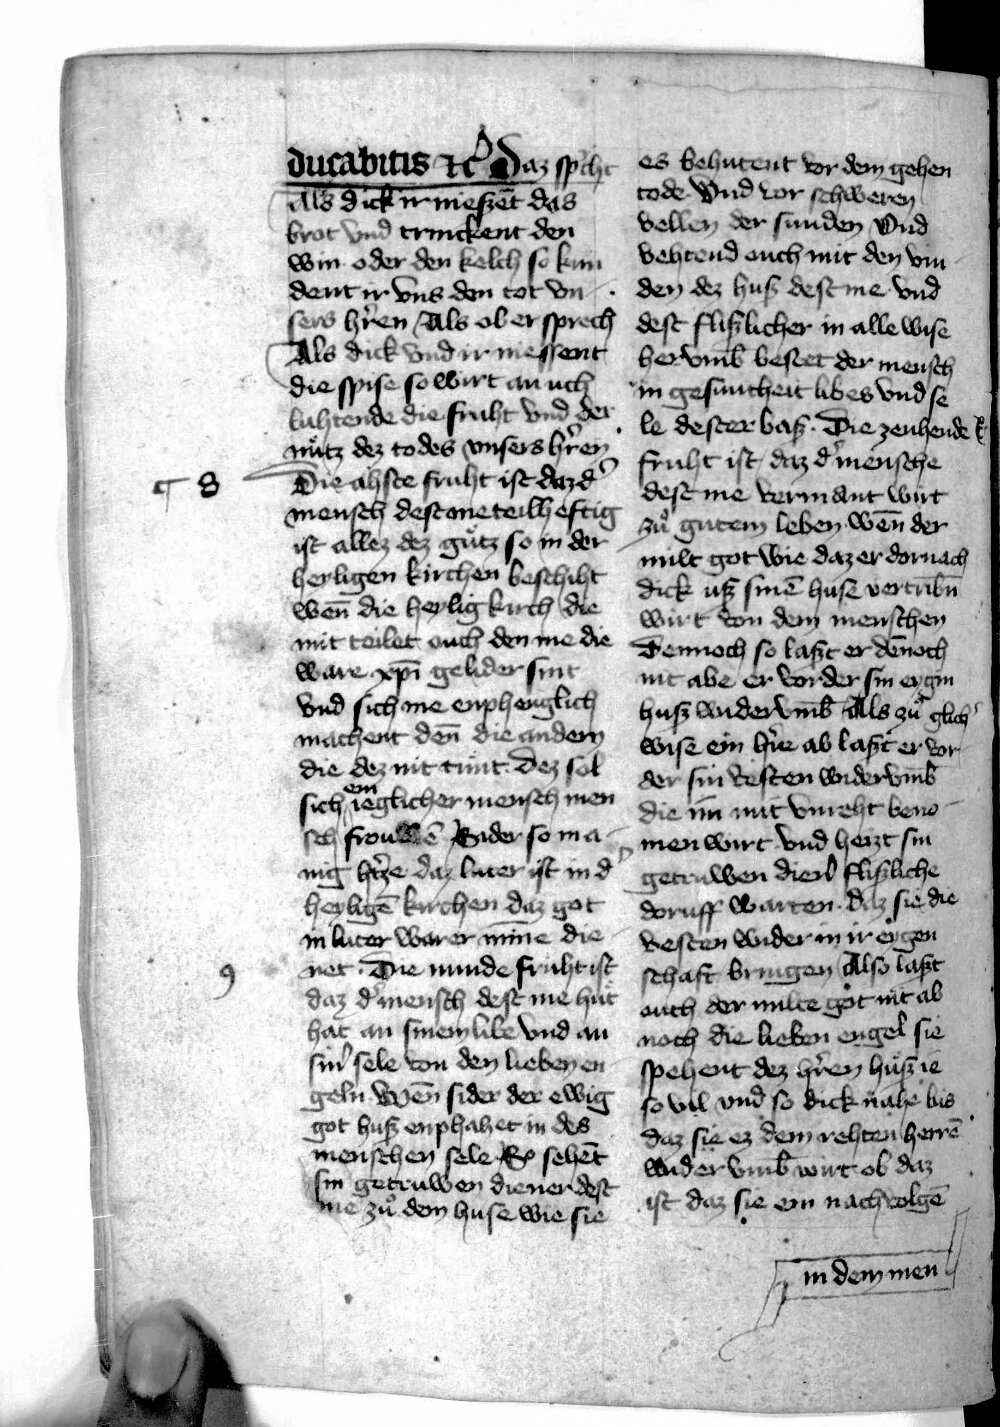 ducabitis ⁊c̃ Daz sp̃cht
Als dick ir nießēt das
brot vnd trinckent den
win oder den kelch so kun
dent ir vns den tot vn
sers hr̃en Als ob er sprech
Als dick vnd ir niessent
die spise so wirt an uch
luhtende die fruht vnd der
nuͤtz dez todes vnsers hr̃en
8
Die ahste fruht ist daz d᾽
mensch dest me teilheftig
ist allez dez guͤtz so in der
heyligen kirchen beschiht
wen̄ die heylig kirch die
mit teilet ouch den me die
ware xp̄i gelider sint
vnd sich me enphenglich
machent den̄ die andern
die dez nit tuͤnt. Dez sol
sich ein ieglicher mensch men
sch frouwē Sider so ma
nig htz̃e daz luter ist in d᾽
heyligē kirchen daz got
in luter warer mine die
9
net. Die nunde fruht ist
daz d᾽ mensch dest me huͤt
hat an sinem libe vnd an
sin᾽ sele von den lieben en
geln Wēn sider der ewig
got huß enphahet in des
menschen sele So sehēt
sin getruwen diener dest
me zuͦ dem huse wie sie
es behutent vor dem gehen
tode Vnd vor schweren
vellen der sunden Vnd
vehtend ouch mit den vin
den dez huß dest me vnd
dest flißlicher in alle wise
her vmb̄ bestet der mensch
in gesuntheit libes vnd se
le dester baß. Die zenhende
fruht ist daz d᾽ mensche
dest me vermant wirt
zuͦ gutem leben wēn der
milt got wie daz er dornach
dick uß sinē huse vertribn̄
wirt von dem menschen
Dennoch so laßt er dēnoch
nit abe er vorder sin eygin
huß wider vmb̄ Als zuͦ glich᾽
wise ein hr̃e ab laßt er vor
der sin vesten wider vmb̄
die im mit vnreht beno
men wirt vnd heizt sin
getruwen dien᾽ flißliche
doruff warten. daz sie die
vesten wider in ir eygen
schaft bringen Also laßt
ouch der milte got nit ab
noch die lieben engel sie
spehent dez hr̃en huͤß ie
so vil vnd so dick nahe bis
daz sie ez dem rehten herrē
wider vmb̄ wirt ob daz
ist daz sie ein nachvolgē
in dem men